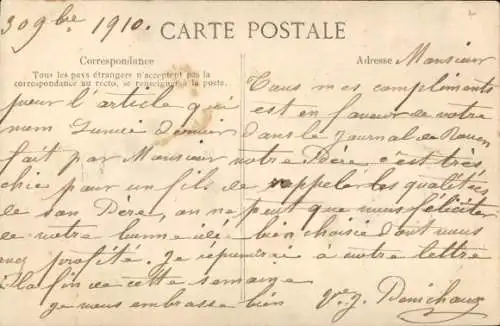 30 9bre 1910.
CARTE POSTALE
Correspondance
Tous les pays étrangers n'acceptent pas la
correspondance au recto, se renseigner à la poste.
Adresse
Monsieur
Tous mes compliments
pour l'article qui
est en faveur de votre
dans le Journal de Rouen
fait par Monsieur votre Père c'est très
chic pour un fils de rappeler les qualitées
de son Père, on ne peut que vous féliciter
de votre bonne idée bien choisie dont vous
profité. Je répondrai à votre lettre
à la fin de cette semaine
je vous embrasse bien
Vve J.